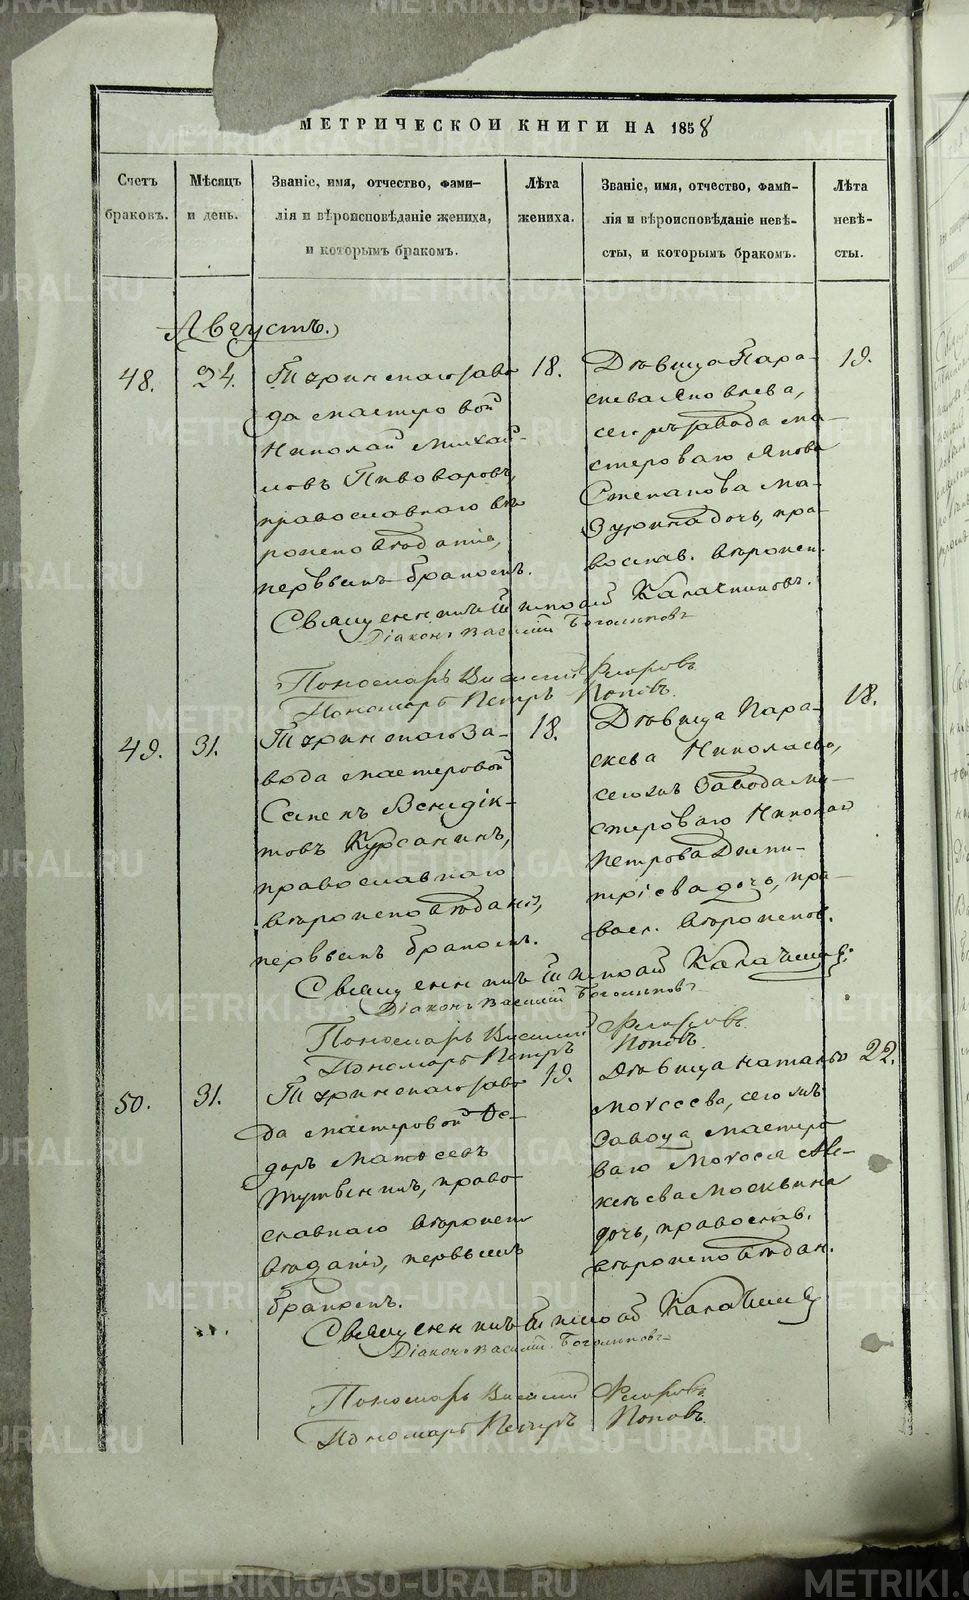 МЕТРИЧЕСКОЙ КНИГИ НА 1858
Счетъ браковъ.
Мѣсяцъ и день.
Званіе, имя, отчество, фами-
лія и вѣроисповѣданіе жениха,
и которымъ бракомъ.
Лѣта жениха.
Званіе, имя, отчество, фами-
лія и вѣроисповѣданіе невѣ-
сты, и которымъ бракомъ.
Лѣта невѣ-
сты.
Августъ.
48.
24.
Туринскаго заво
да мастеровой
Николай Михай-
ловъ Пивоваровъ,
православнаго вѣ
роисповѣданія,
первымъ бракомъ.
18.
Дѣвица Пара-
скева Яковлева,
сегожъ завода ма-
стероваго Якова
Степанова Ма-
зурина дочь, пра-
вослав. вѣроисп.
19.
Священникъ Николай Калачниковъ.
Діаконъ Василій Боголѣповъ
Пономарь Василій Флоровъ
Пономарь Петръ Поповъ.
49.
31.
Туринскаго За-
вода мастеровой
Семенъ Венидік-
товъ Курсанинъ,
православнаго
вѣроисповѣданія,
первымъ бракомъ.
18.
Дѣвица Пара-
скева Николаева,
сегожъ Завода ма-
стероваго Николая
Петрова Дими-
тріева дочь, пра-
восл. вѣроисповѣ.
18.
Священникъ Николай
Діаконъ Василій Боголѣповъ
Пономарь Василій Флоровъ.
Пономарь Петръ Поповъ.
50.
31.
Туринскаго заво
да мастеровой Ѳе-
доръ Матѳеевъ
православнаго вѣроиспо
вѣданія, первымъ
бракомъ.
19.
Дѣвица Наталья
Моѵсеева, сегожъ
Завода мастеро
ваго Моѵсея Але-
ксѣева Москвина
дочь, православ.
вѣроисповѣдан.
22.
Священникъ Николай
Діаконъ Василій Боголѣповъ
Пономарь Василій Флоровъ.
Пономарь Петръ Поповъ.
METRIKI.GASO-URAL.RU